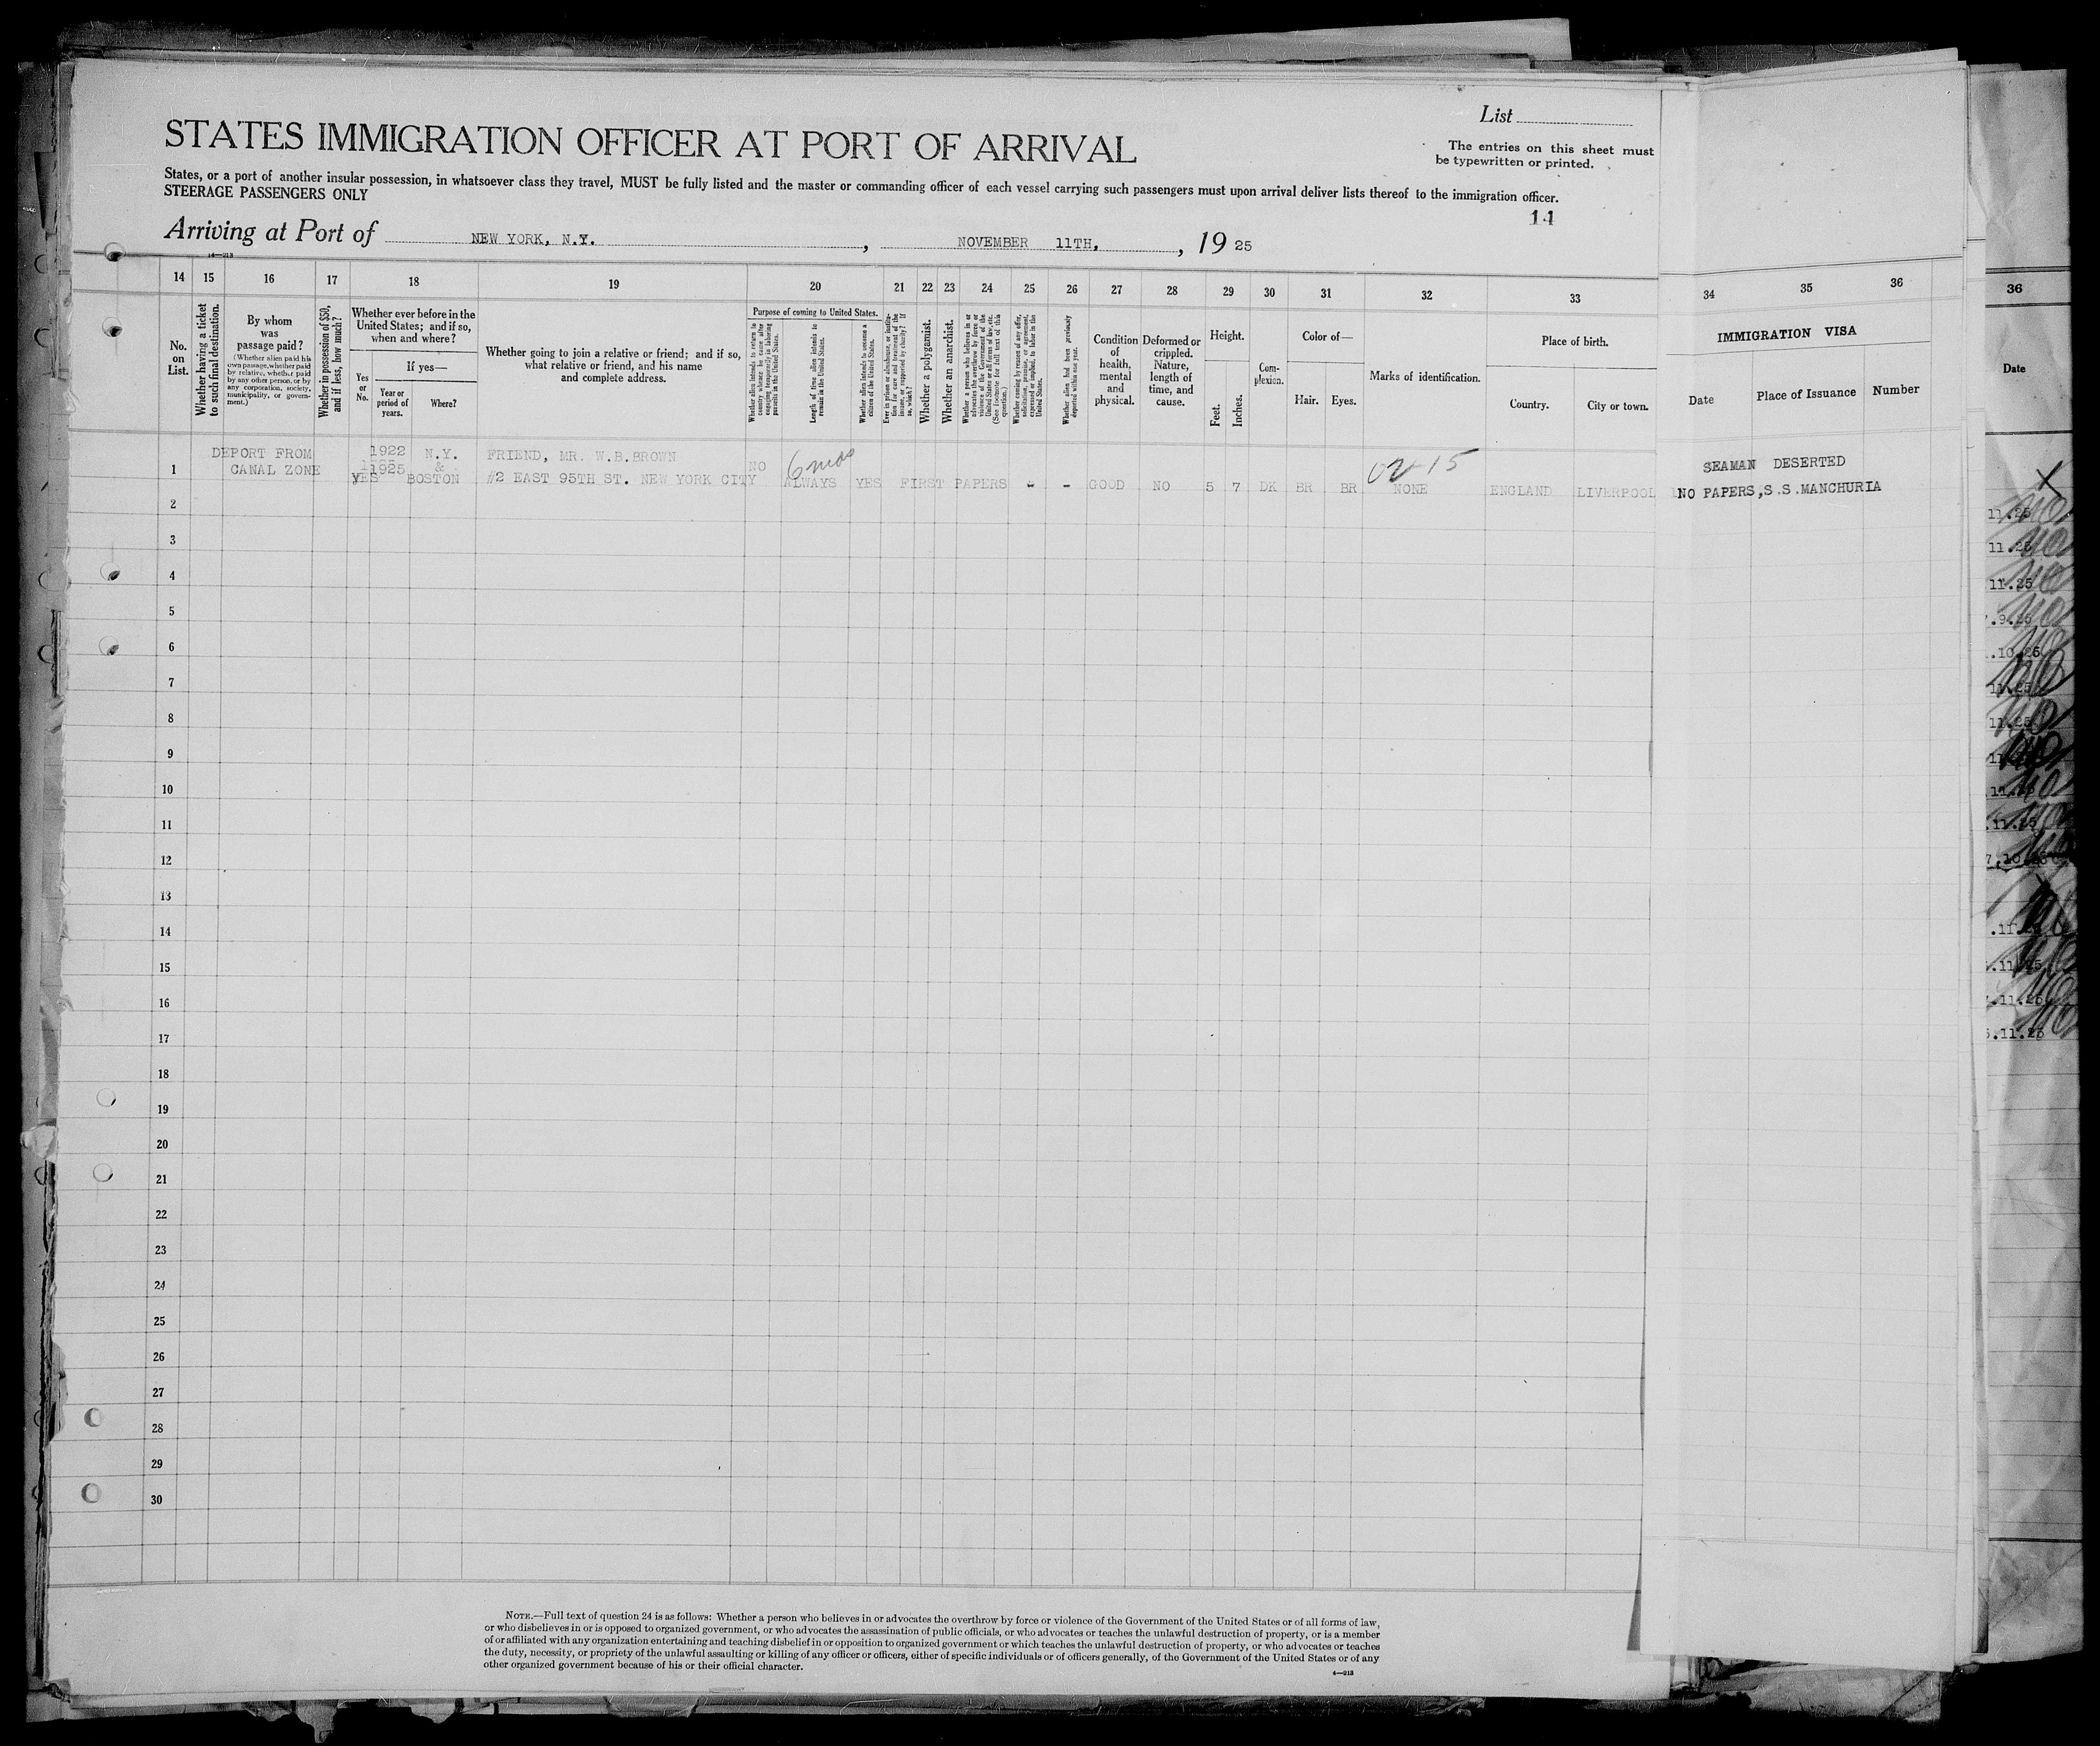 List
STATES IMMIGRATION OFFICER AT PORT OF ARRIVAL
The entries on this sheet must
be typewritten or printed.
States, or a port of another insular possession, in whatsoever class they travel, MUST be fully listed and the master or commanding officer of each vessel carrying such passengers must upon arrival deliver lists thereof to the immigration officer.
STEERAGE PASSENGERS ONLY
11
Arriving at Port of NEW YORK, N.Y. , NOVEMBER 11TH, , 19 25
14—213
14 15 16 17 18 19 20 21 22 23 24 25 26 27 28 29 30 31 32 33 34 35 36
No. on List.
Whether having a ticket to such final destination.
By whom was passage paid?
(Whether alien paid his own passage, whether paid by relative, whether paid by any other person, or by any corporation, society, municipality, or government.)
Whether in possession of $50, and if less, how much?
Whether ever before in the United States; and if so, when and where?
Yes or No.
If yes—
Year or period of years.
Where?
Whether going to join a relative or friend; and if so, what relative or friend, and his name and complete address.
Purpose of coming to United States.
Whether alien intends to return to country whence he came after engaging temporarily in laboring pursuits in the United States.
Length of time alien intends to remain in the United States.
Whether alien intends to become a citizen of the United States.
Ever in prison or almshouse, or institution for care and treatment of the insane, or supported by charity? If so, which?
Whether a polygamist.
Whether an anarchist.
Whether a person who believes in or advocates the overthrow by force or violence of the Government of the United States or all forms of law, etc. (See footnote for full text of this question.)
Whether coming by reason of any offer, solicitation, promise, or agreement, expressed or implied, to labor in the United States.
Whether alien had been previously deported within one year.
Condition of health, mental and physical.
Deformed or crippled. Nature, length of time, and cause.
Height.
Feet.
Inches.
Complexion.
Color of—
Hair.
Eyes.
Marks of identification.
Place of birth.
Country.
City or town.
IMMIGRATION VISA
Date
Place of Issuance
Number
36
Date
DEPORT FROM 1922 N.Y. FRIEND, MR. W.B.BROWN NO 6 mos SEAMAN DESERTED
1 CANAL ZONE YES 1925 & BOSTON #2 EAST 95TH ST. NEW YORK CITY ALWAYS YES FIRST PAPERS - - GOOD NO 5 7 DK BR BR NONE ENGLAND LIVERPOOL NO PAPERS,S.S.MANCHURIA
2
3
4
5
6
7
8
9
10
11
12
13
14
15
16
17
18
19
20
21
22
23
24
25
26
27
28
29
30
NOTE.—Full text of question 24 is as follows: Whether a person who believes in or advocates the overthrow by force or violence of the Government of the United States or of all forms of law,
or who disbelieves in or is opposed to organized government, or who advocates the assassination of public officials, or who advocates or teaches the unlawful destruction of property, or is a member
of or affiliated with any organization entertaining and teaching disbelief in or opposition to organized government or which teaches the unlawful destruction of property, or who advocates or teaches
the duty, necessity, or propriety of the unlawful assaulting or killing of any officer or officers, either of specific individuals or of officers generally, of the Government of the United States or of any
other organized government because of his or their official character.